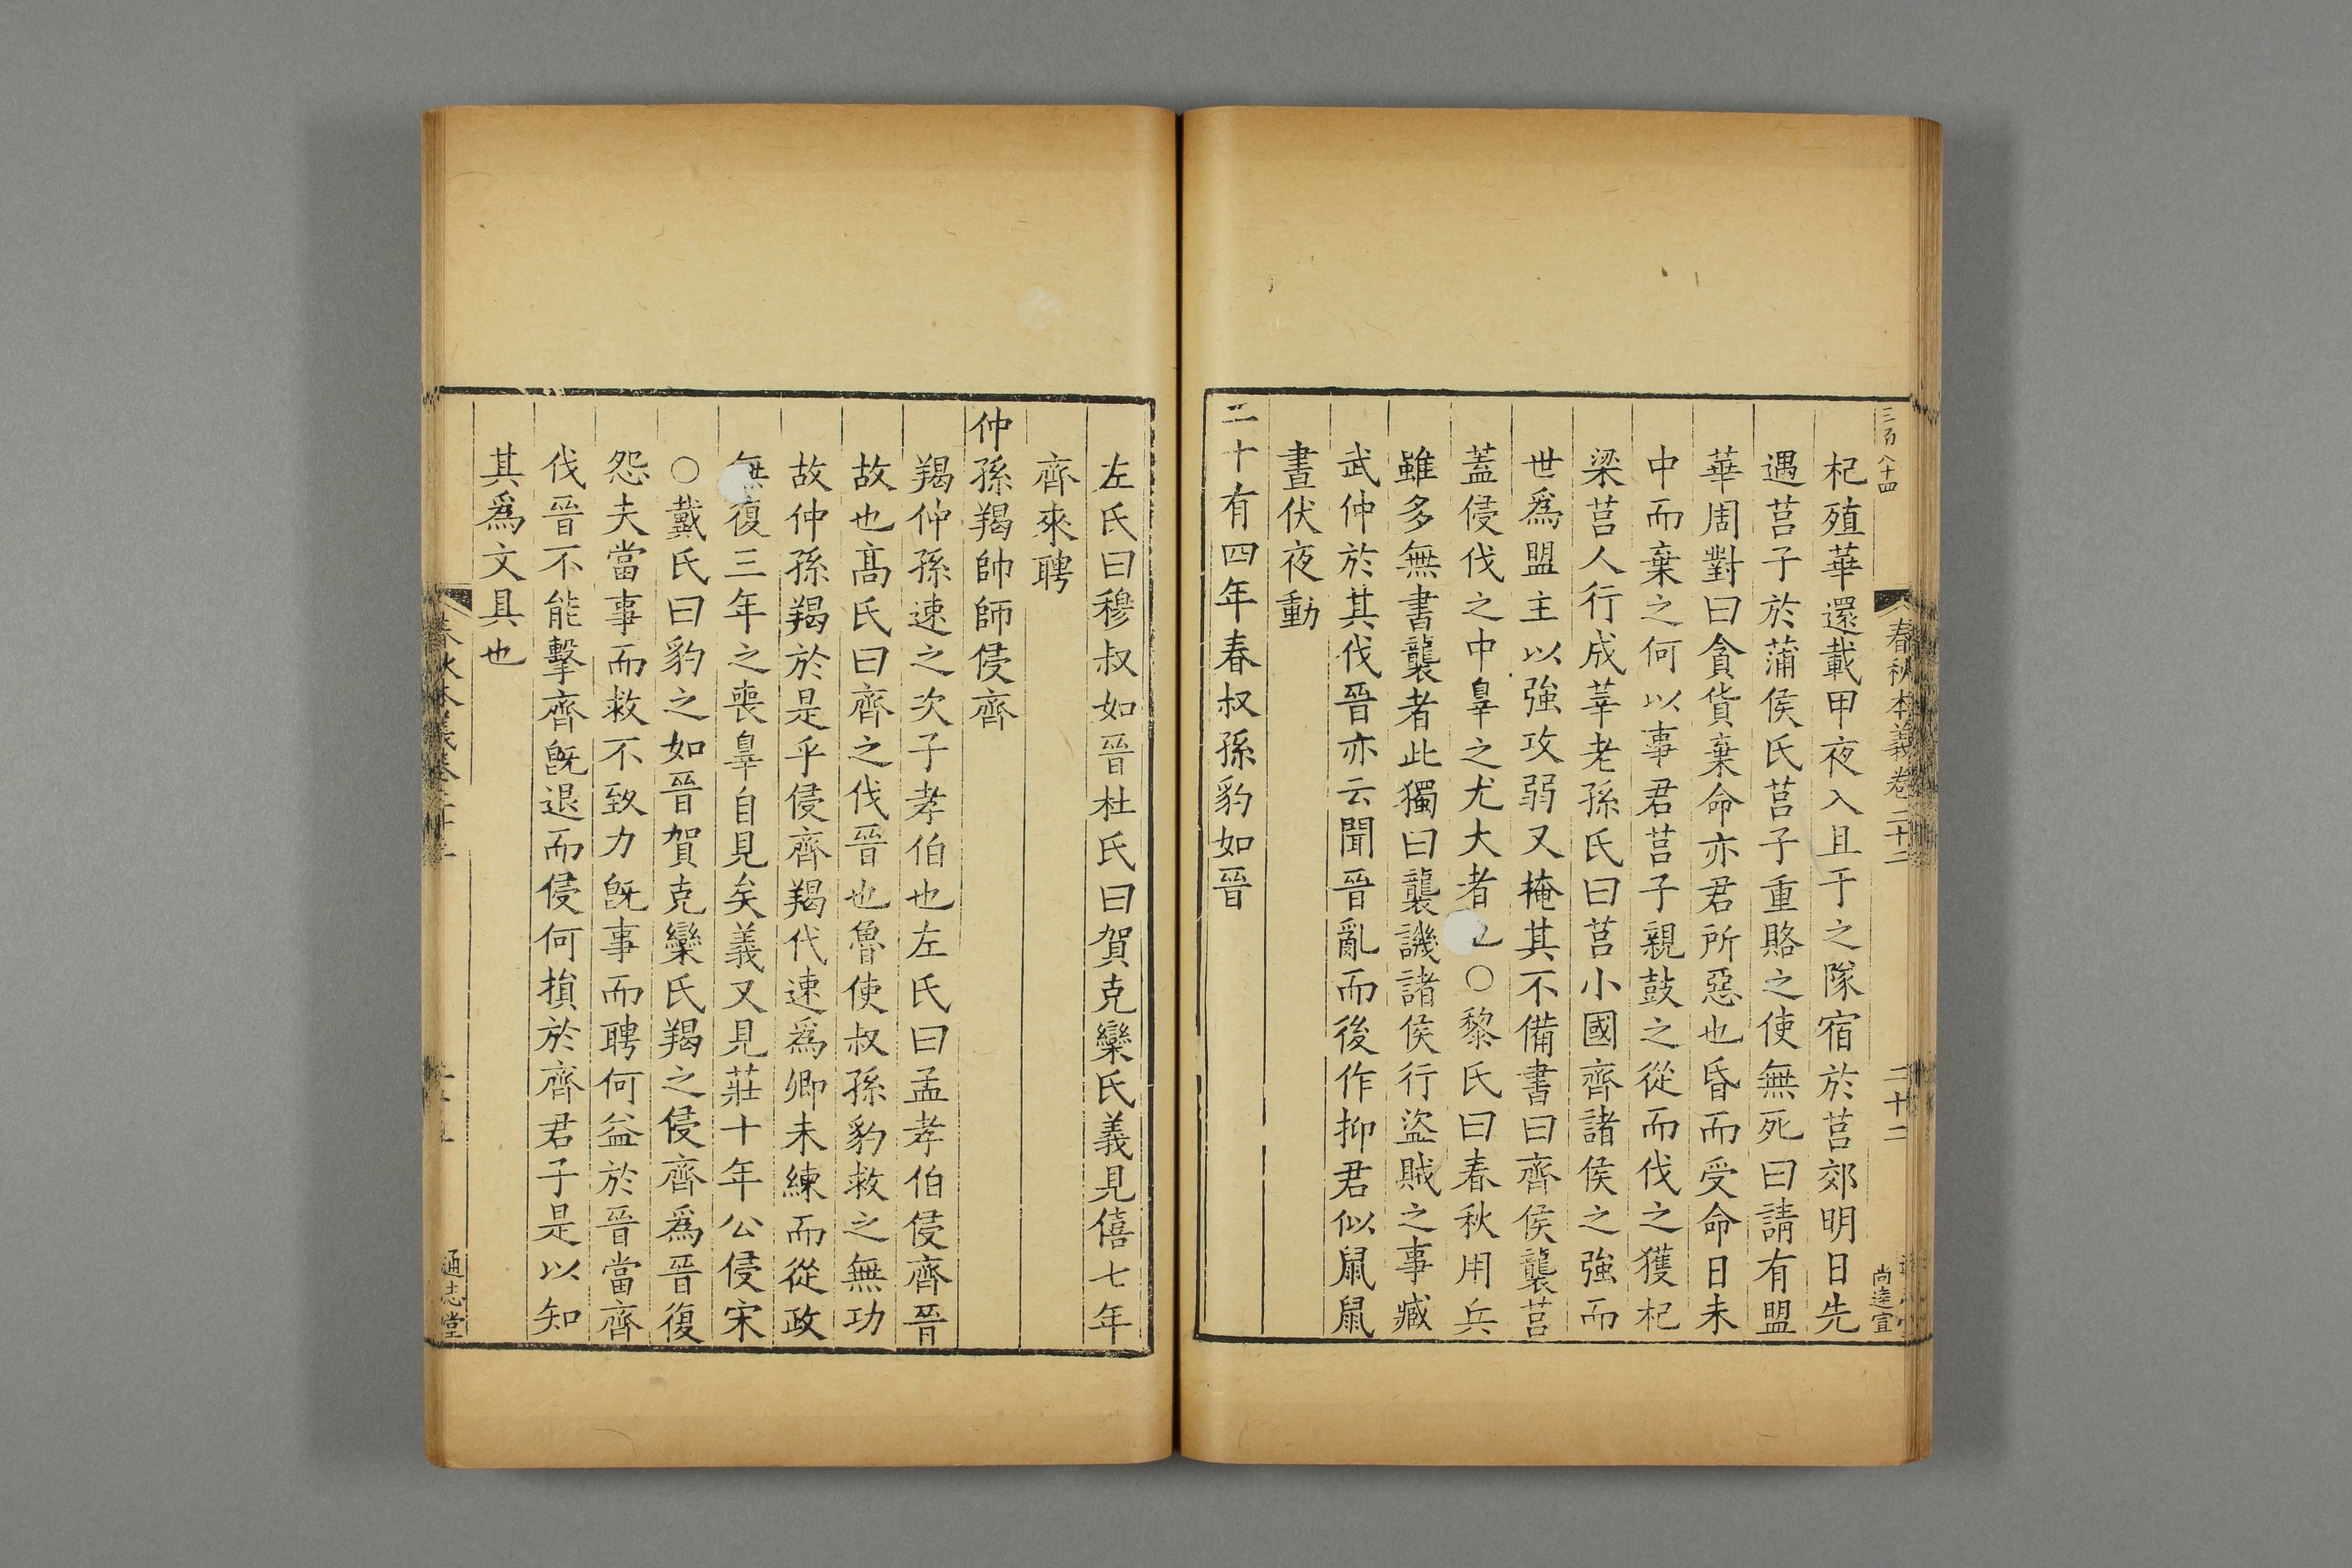 三百八十四
春秋本義卷二十二
二十二
尚達宣
杞殖華還載甲夜入且于之隊宿於莒郊明日先
遇莒子於蒲侯氏莒子重賂之使無死曰請有盟
華周對曰貪貨棄命亦君所惡也昏而受命日未
中而棄之何以事君莒子親鼓之從而伐之獲杞
梁莒人行成莘老孫氏曰莒小國齊諸侯之強而
世爲盟主以強攻弱又掩其不備書曰齊侯襲莒
蓋侵伐之中辠之尤大者也○黎氏曰春秋用兵
雖多無書襲者此獨曰襲譏諸侯行盜賊之事臧
武仲於其伐晉亦云聞晉亂而後作抑君似鼠鼠
晝伏夜動
二十有四年春叔孫豹如晉
左氏曰穆叔如晉杜氏曰賀克欒氏義見僖七年
齊來聘
仲孫羯帥師侵齊
羯仲孫速之次子孝伯也左氏曰孟孝伯侵齊晉
故也髙氏曰齊之伐晉也魯使叔孫豹救之無功
故仲孫羯於是乎侵齊羯代速爲卿未練而從政
無復三年之喪辠自見矣義又見莊十年公侵宋
○戴氏曰豹之如晉賀克欒氏羯之侵齊爲晉復
怨夫當事而救不致力旣事而聘何益於晉當齊
伐晉不能擊齊旣退而侵何損於齊君子是以知
其爲文具也
通志堂